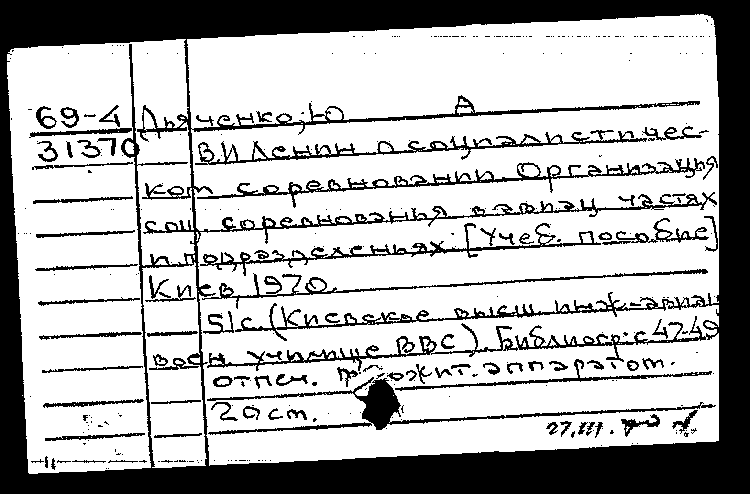 69-4 Дьяченко, Ю А
31370 В.И Ленин о социалистичес-
ком соревновании. Организация
соц. соревнованья в авиац. частях
и подразделеньях: [Учеб. пособие]
Киев, 1970.
51с. (Киевское высш. инж-авиац
воен. училище ВВС). Библиогр: с 47-49
отпеч. аппаратом.
20 см.
27.III.